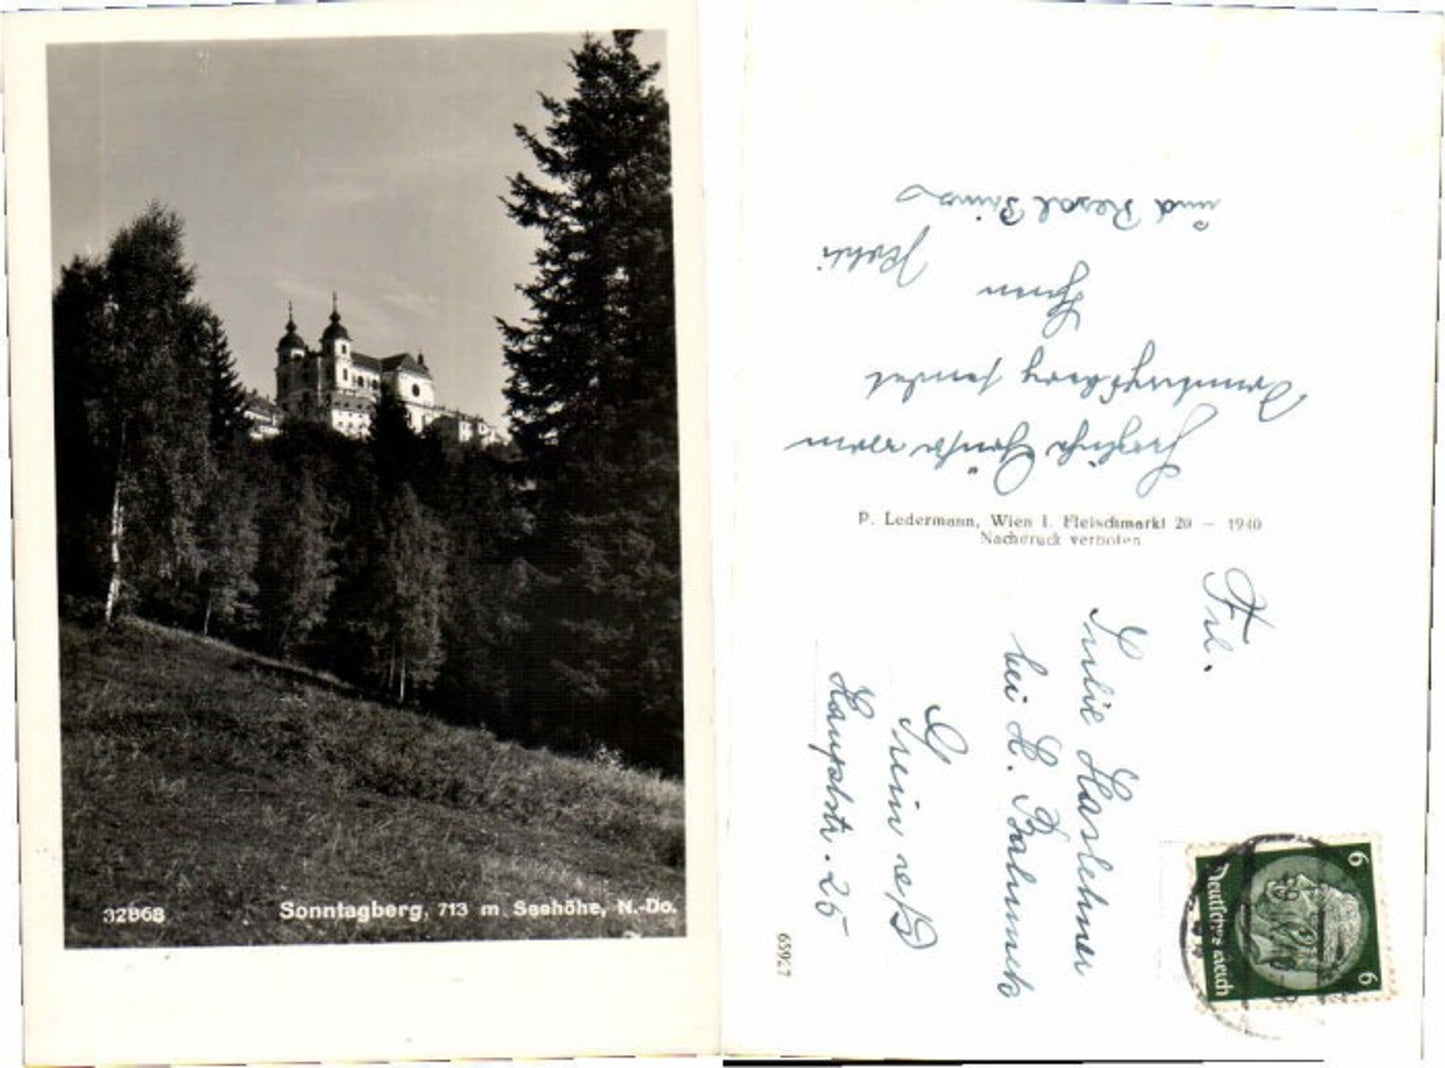 32868
Sonntagberg, 713 m Seehöhe, N.-Do.
Herzliche Grüße vom
Sonntagsberg sendet
Ihnen
und Resal
P. Ledermann, Wien I. Fleischmarkt 20 — 1940
Nachdruck verboten
Frl.
Julie Haslehner
bei H.
Grein a/D
Hauptstr. 25
65927
Deutsches Reich
6
6